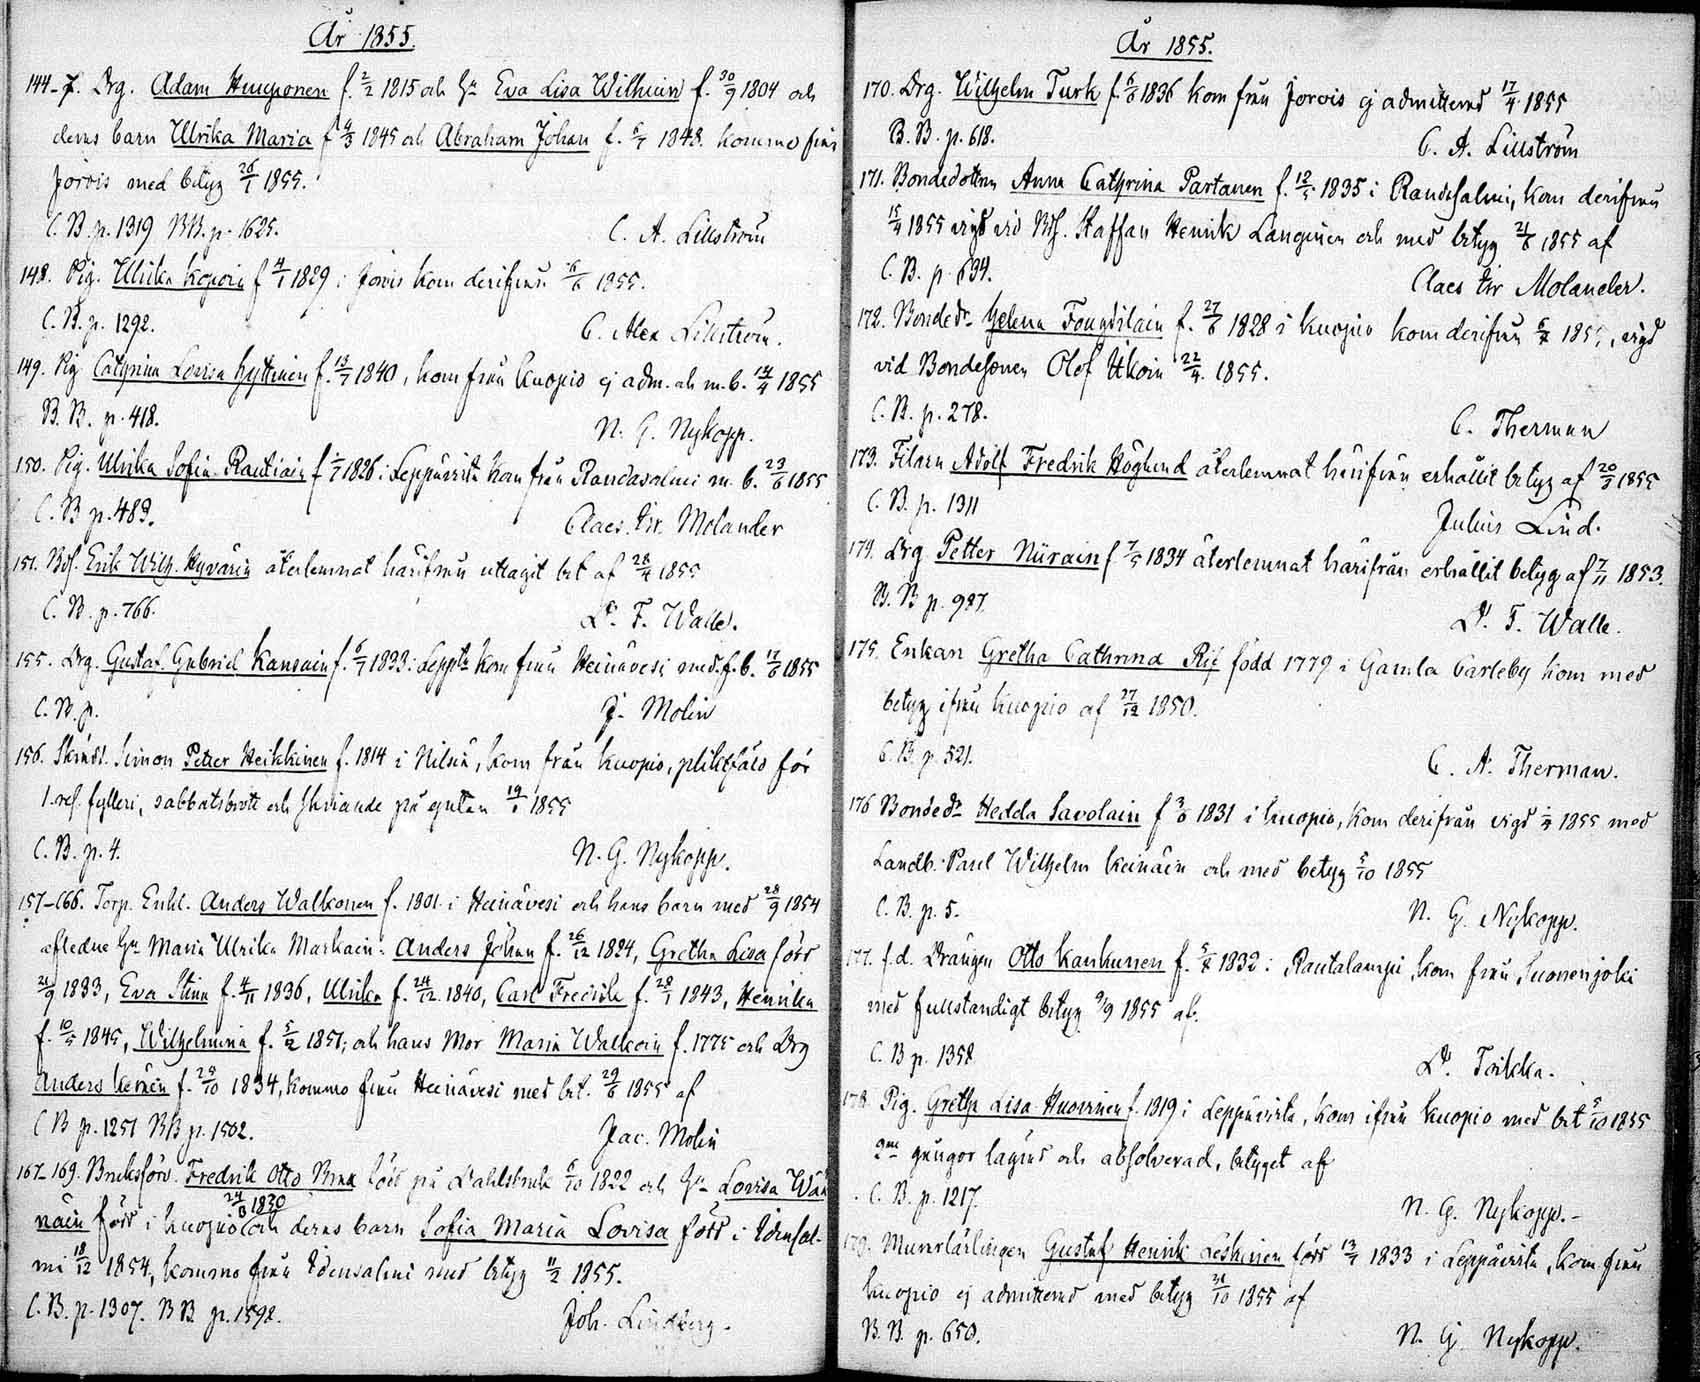 År 1855.
144-7. Drg. Adam Huuponen f. 2/2 1815 och Hu Eva Lisa Wilhuin f. 30/9 1804 och
deras barn Ulrika Maria f 4/3 1845 och Abraham Johan f. 1848. komma från
Jorois med betyg 26/1 1855.
C. B. p. 1319 BB. p. 1625.
C. A. Lillström
148. Pig. Ulrika Kopoin f 4/1 1829 i Jorois kom derifrån 1855.
C. B. p. 1292.
C. Alex Lillström.
149. Pig Cathrina Lovisa Hyttinen f. 13/7 1840, kom från Kuopio ej adm. och m. b. 14/4 1855
B. B. p. 418.
N. G. Nykopp.
150. Pig. Ulrika Sofia Rautiain f 1826 i Leppävirta kom från Randasalmi m. b. 23/6 1855
C. B p. 489.
Claes Gr. Molander
151. Bds. Erik Wilh. Hyvärin återlemnat härifrån uttagit bet af 28/4 1855
C. B. p. 766.
F. Walle.
155. Drg. Gustaf Gabriel Kansain f. 6/7 1833 i Leppvta kom från Heinävesi med f. b. 17/6 1855
C. B. p.
J. Molin
156. Simon Petter Heikkinen f. 1814 i Nilsiä, kom från Kuopio, pliktfäld för
1. res. fylleri, sabbatsbrott och skriande på gatan 1855
C. B. p. 4.
N. G. Nykopp.
157-166. Torp. Enkl. Anders Walkonen f. 1801 i Heinävesi och hans barn med 28/9 1854
afledne Hu Maria Ulrika Markain: Anders Johan f. 26/12 1824, Gretha Lisa född
21/9 1833, Eva Stina f. 4/11 1836, Ulrika f. 24/12 1840, Carl Fredrik f. 28/1 1843, Henrika
f. 10/5 1845, Wilhelmina f. 5/2 1851; och hans Mor Maria Walkoin f. 1775 och Drg
Anders f. 29/10 1834, kommo från Heinävesi med bet. 29/6 1855 af
C B p. 1251 BB p. 1502.
Jac. Molin
167-169. Bruksförv. Fredrik Otto född på Dahlsbruk 6/10 1822 och Hu Lovisa Wää
näin född i Kuopio 24/8 1820 och deras barn Sofia Maria Lovisa född i Idensal-
mi 18/12 1854, kommo från Idensalmi med betyg 11/2 1855.
C. B. p. 1307. BB. p. 1592.
Joh. Lindberg.
År 1855.
170. Drg. Wilhelm Turk f. 6/8 1836 kom från Jorois ej admitterad 17/4 1855
B. B. p. 618.
C. A. Lillström
171. Bondedottern Anna Cathrina Partanen f. 12/5 1835 i Randasalmi, kom derifrån
15/4 1855 vigd vid Bds. Staffan Henrik Langinen och med betyg 21/6 1855 af
C. B. p. 694.
Claes Gr Molander.
172. Bonded. Helena f. 27/6 1828 i Kuopio kom derifrån 1855, vigd
vid Bondesonen Olof Ukoin 22/4 1855.
C. B. p. 278.
C. Therman
173. Filarn Adolf Fredrik Höglund återlemnat härifrån erhållit betyg af 20/3 1855
C. B. p. 1311
Julius Lind.
174. Drg Petter Nirain f 7/5 1834 återlemnat härifrån erhållit betyg af 7/11 1853.
B. B p. 987.
F. Walle.
175. Enkan Gretha Cathrina född 1779 i Gamla Carleby kom med
betyg ifrån Kuopio af 27/12 1850.
C. B. p. 521.
C. A. Therman.
176 Bonded. Hedda Savolain f 3/6 1831 i Kuopio, kom derifrån vigd 1855 med
Landb. Paul Wilhelm Keinäin och med betyg 5/10 1855
C. B. p. 5.
N. G. Nykopp.
177. f. d. Drängen Otto Kankunen f. 1832 i Rautalampi kom från Suonenjoki
med fullständigt betyg 9/9 1855 af.
C. B p. 1358
Toikka.
178. Pig. Greta Lisa Huovinen f. 1819 i Leppävirta, kom ifrån Kuopio med bet 5/10 1855
2ne gångor lägrad och absolverad, betyget af
C. B. p. 1217.
N. G. Nykopp.-
179. Murarlärlingen Gustaf Henrik Leskinen född 13/7 1833 i Leppävirta, kom från
Kuopio ej admitterad med betyg 21/10 1855 af
B. B. p. 650.
N. G Nykopp.